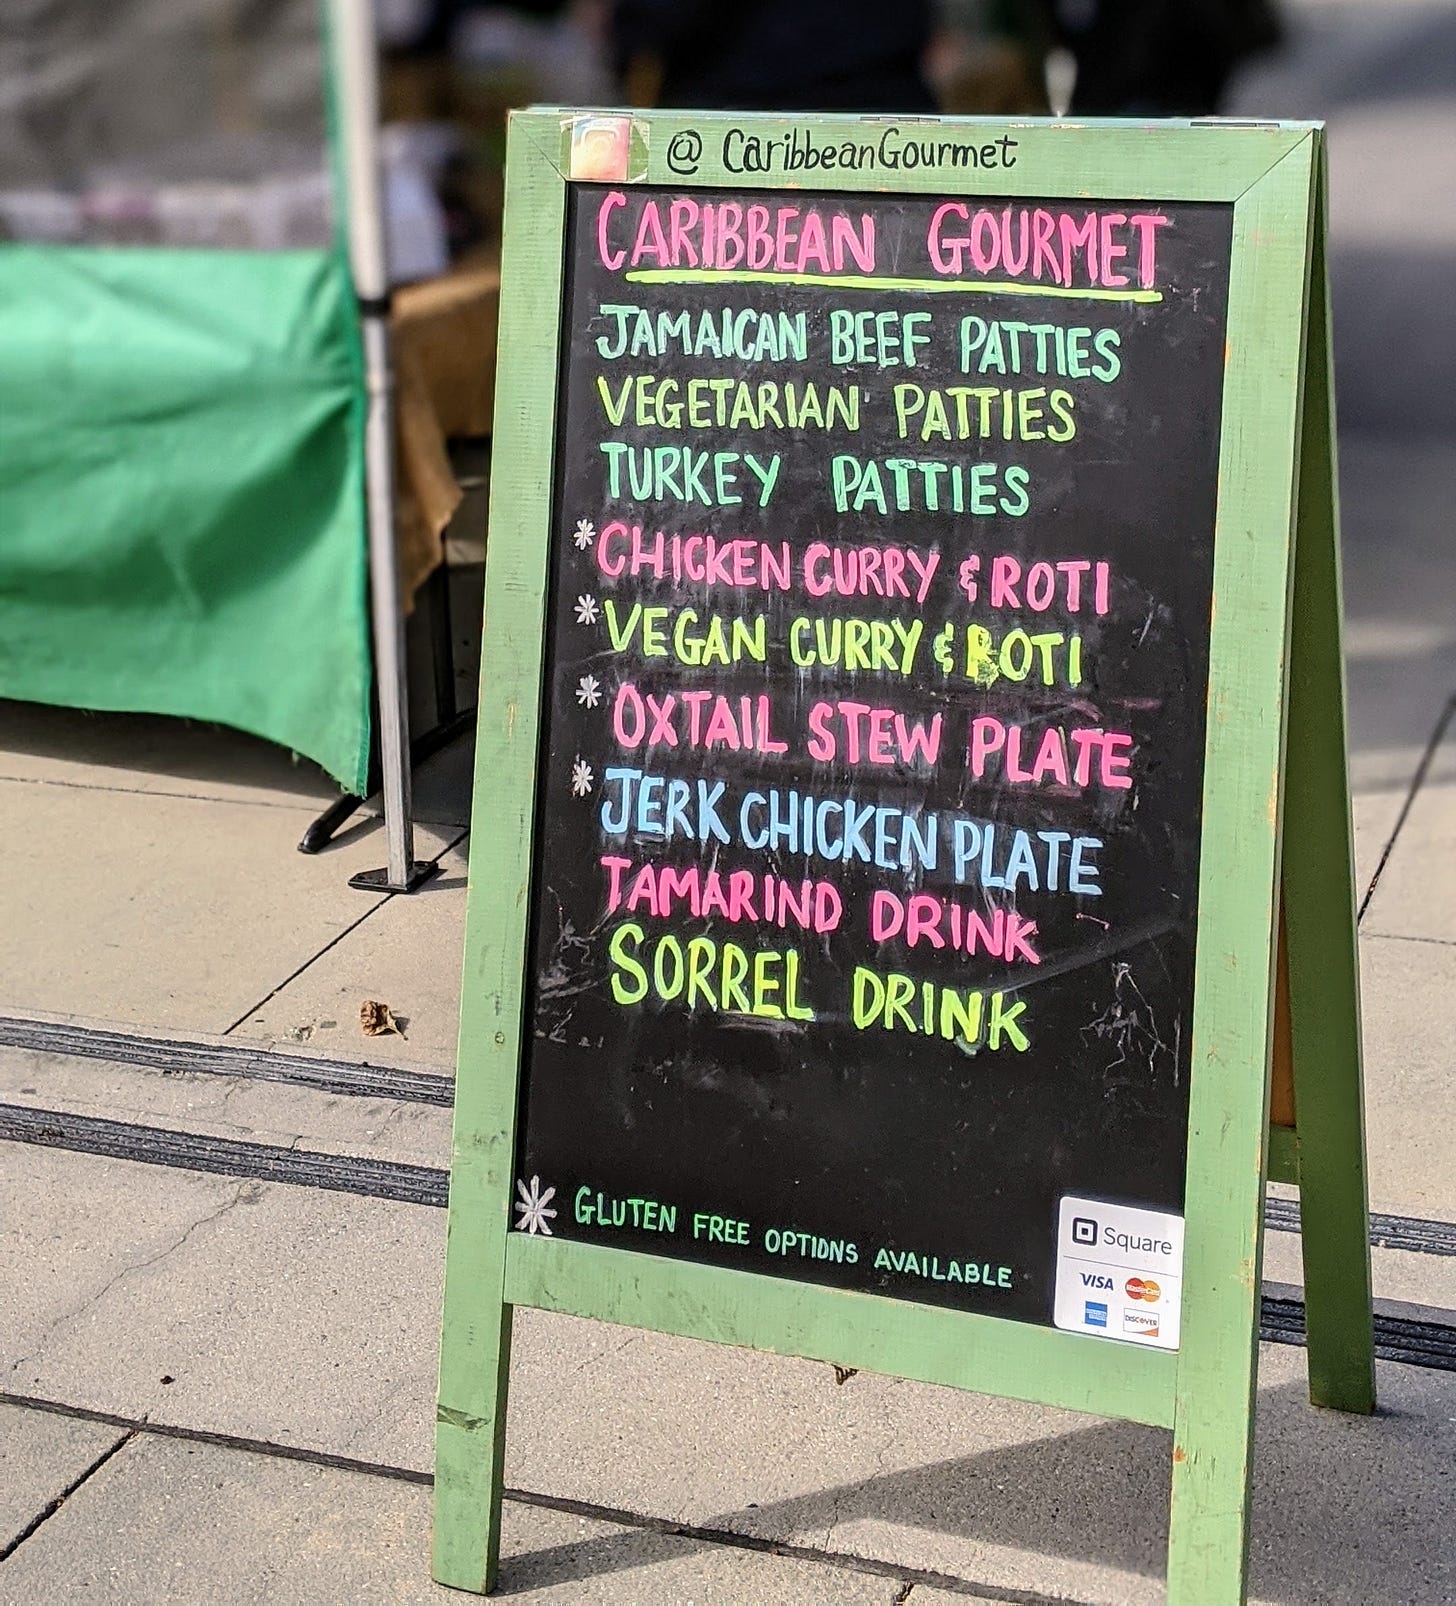 @ CaribbeanGourmet
CARIBBEAN GOURMET
JAMAICAN BEEF PATTIES
VEGETARIAN PATTIES
TURKEY PATTIES
* CHICKEN CURRY & ROTI
* VEGAN CURRY & ROTI
* OXTAIL STEW PLATE
* JERK CHICKEN PLATE
TAMARIND DRINK
SORREL DRINK
* GLUTEN FREE OPTIONS AVAILABLE
Square
VISA MasterCard
DISCOVER